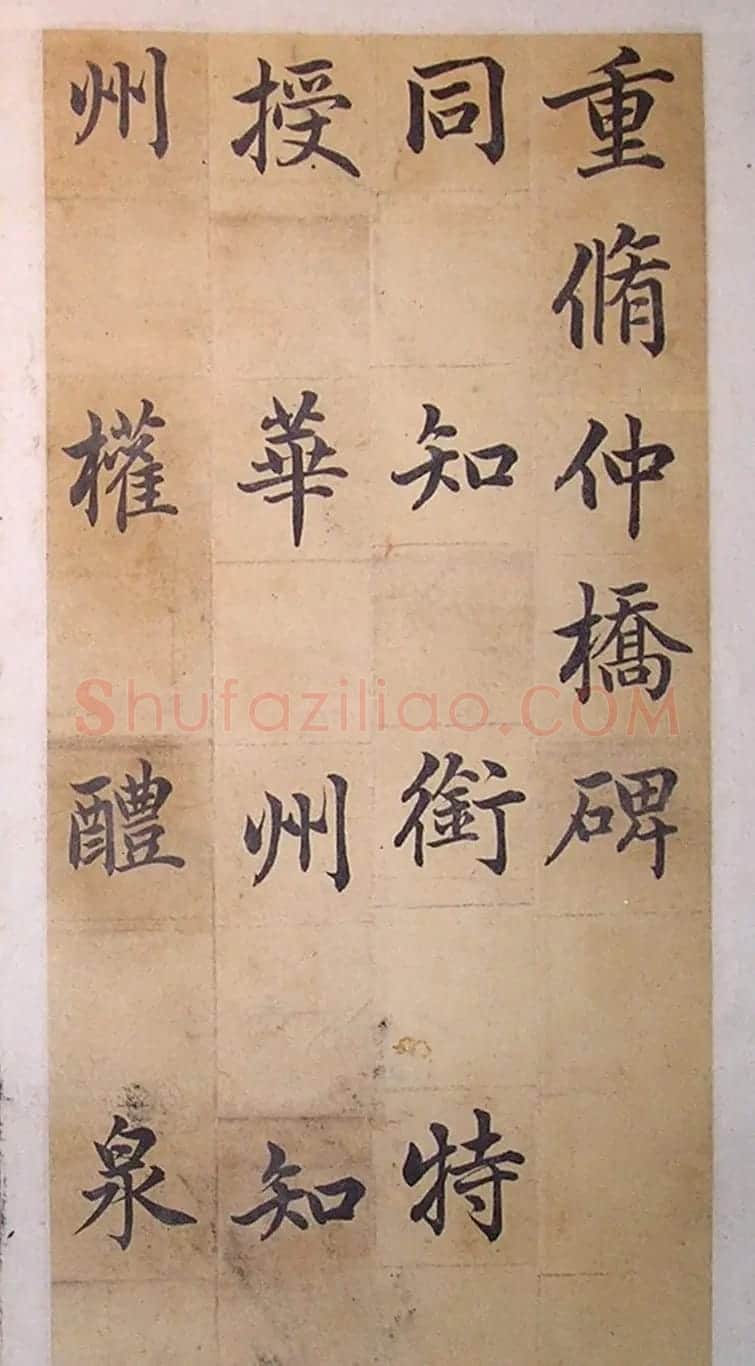 重脩仲橋碑
同知銜特
授華州知
州權醴泉
Shufaziliao.COM